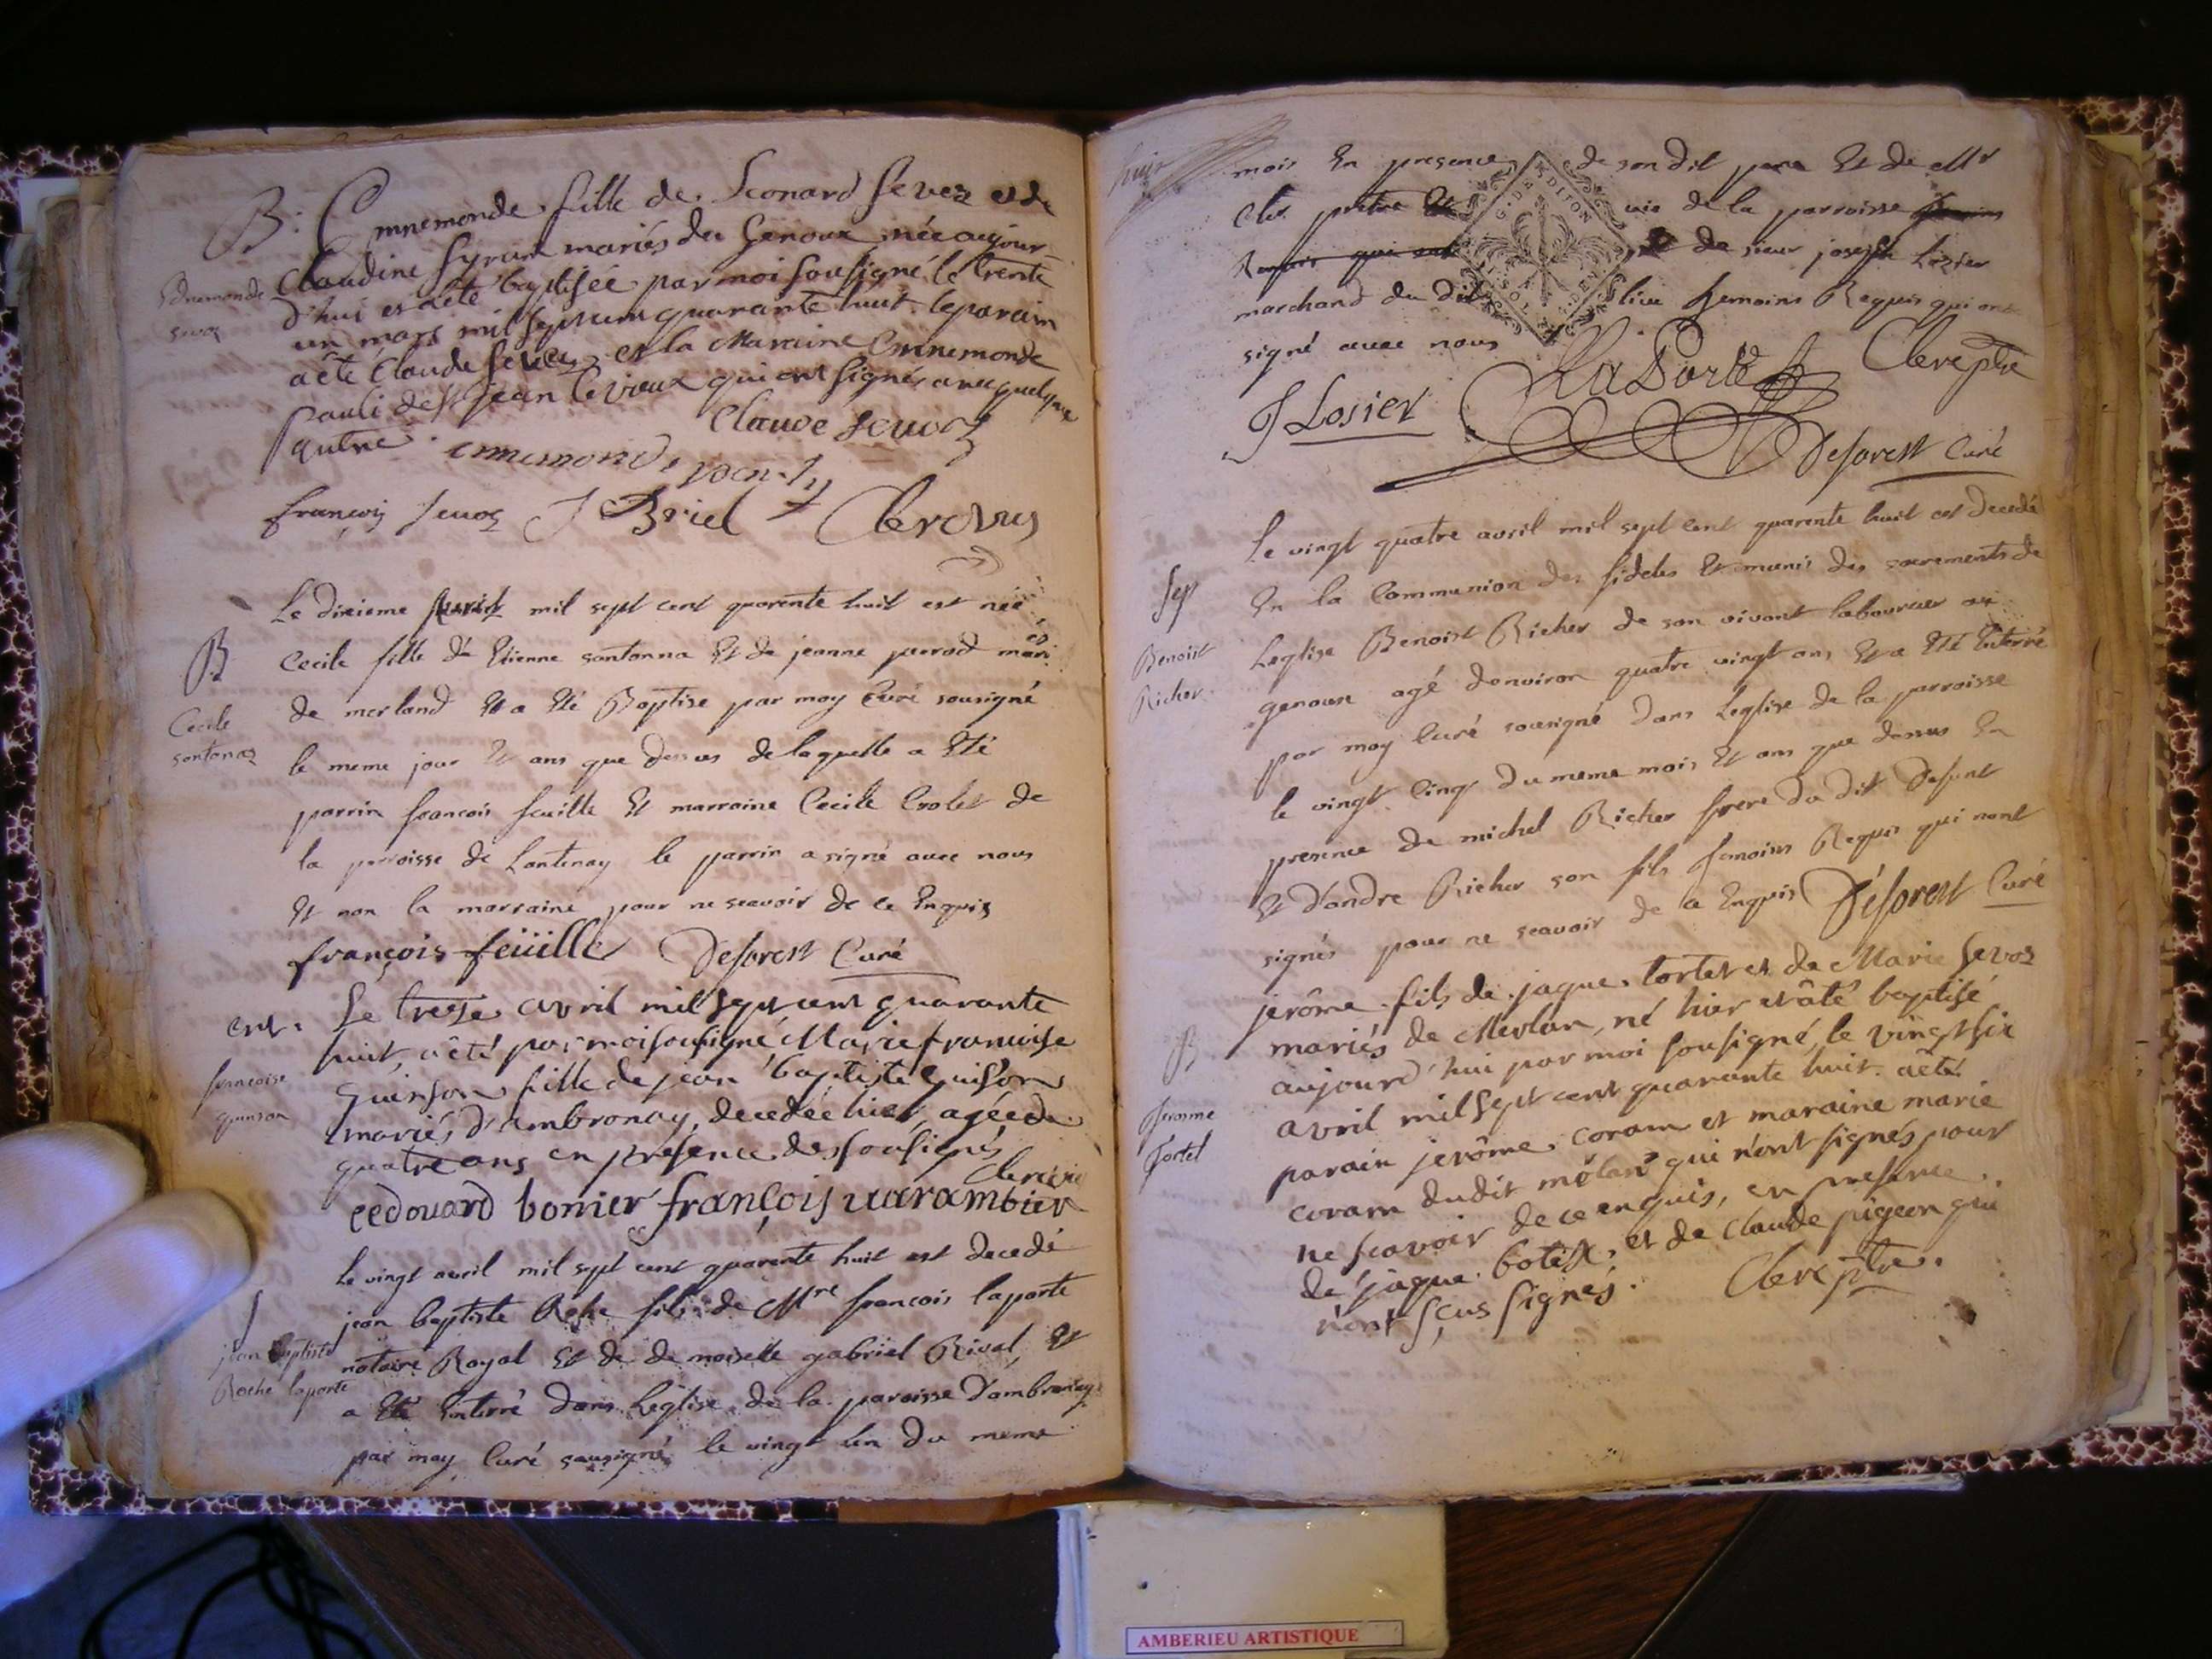 B. Ennemonde fille de Leonard Sevoz et de
Claudine Syrun mariés du Genoux née aujour
d'hui et a été baptisée par moi sousigné le trente
un mars mil sept cent quarante huit. le parain
a été Claude Sevoz et la Maraine Ennemonde
pauli de st jean le vieux qui ont signés avec quelque
autre.
Ennemonde
sevoz
Claude Sevoz
ennemonde
françois Sevoz J Briel Clerc vic
Le dixieme avril mil sept cent quarente huit est née
Cecile fille de Etienne santonna Et de jeanne perrod mariés
de merland Et a Eté Baptise par moy Curé sousigné
le meme jour Et ans que dessus de laquelle a Eté
parrin francois feuille Et marraine Cecile Crolet de
la parroisse de Lantenay le parrin a signé avec nous
Et non la marraine pour ne scavoir de ce Enquis
B
Cecile
santonaz
françois feüille Deforest Curé
Le treize avril mil sept cent quarante
huit, a été par moi sousigné Marie francoise
Guinson fille de jean baptiste Guison
mariés d'ambronay, decedée hier, agée de
quatre ans en presence des sousignés
ent.
francoise
guinson
Clerc vic
eedouard bonier françois uarambier
Le vingt avril mil sept cent quarente huit est decedé
jean baptiste Roche fils de Mre francois laporte
notaire Royal Et de demoiselle gabriel Rival Et
a Eté Enterré dans Leglise de la paroisse d'ambronay
par moy Curé sousigné le vingt Un du meme
jean Baptiste
Roche laporte
mois En presence de son dit pere Et de Mr
Clerc pretre vic de la parroisse
Requis qui ont de sieur joseph Lozier
marchand du dit lieu temoins Requis qui ont
signé avec nous
G. DE DIJON
J Losier LaPorte Clerc ptre
Deforest Curé
Le vingt quatre avril mil sept cent quarente huit est decedé
En la Communion des fideles Et munis des sacrements de
Leglise Benoist Richer de son vivant laboureur au
genoux agé d'environ quatre vingt ans Et a Eté Enterré
par moy Curé sousigné dans Leglise de la parroisse
le vingt Cinq du meme mois Et ans que dessus En
presence de michel Richer frere du dit defunt
Et d'andre Richer son fils temoins Requis qui nont
signés pour ne scavoir de ce Enquis Déforest Curé
Sep
Benoist
Richer
jerôme fils de jaque tortet et de Marie Sevoz
mariés de Merlan, né hier et a été baptisé
aujourd'hui par moi sousigné, le vingt six
avril mil sept cent quarante huit. a été
parain jerôme coram et maraine marie
coram dudit mêlan qui n'ont signés pour
ne scavoir de ce enquis, en presence
de jaque botex, et de Claude pigeon qui
n'ont sçus signés. Clerc ptre.
B
Jerosme
Tortet
AMBERIEU ARTISTIQUE